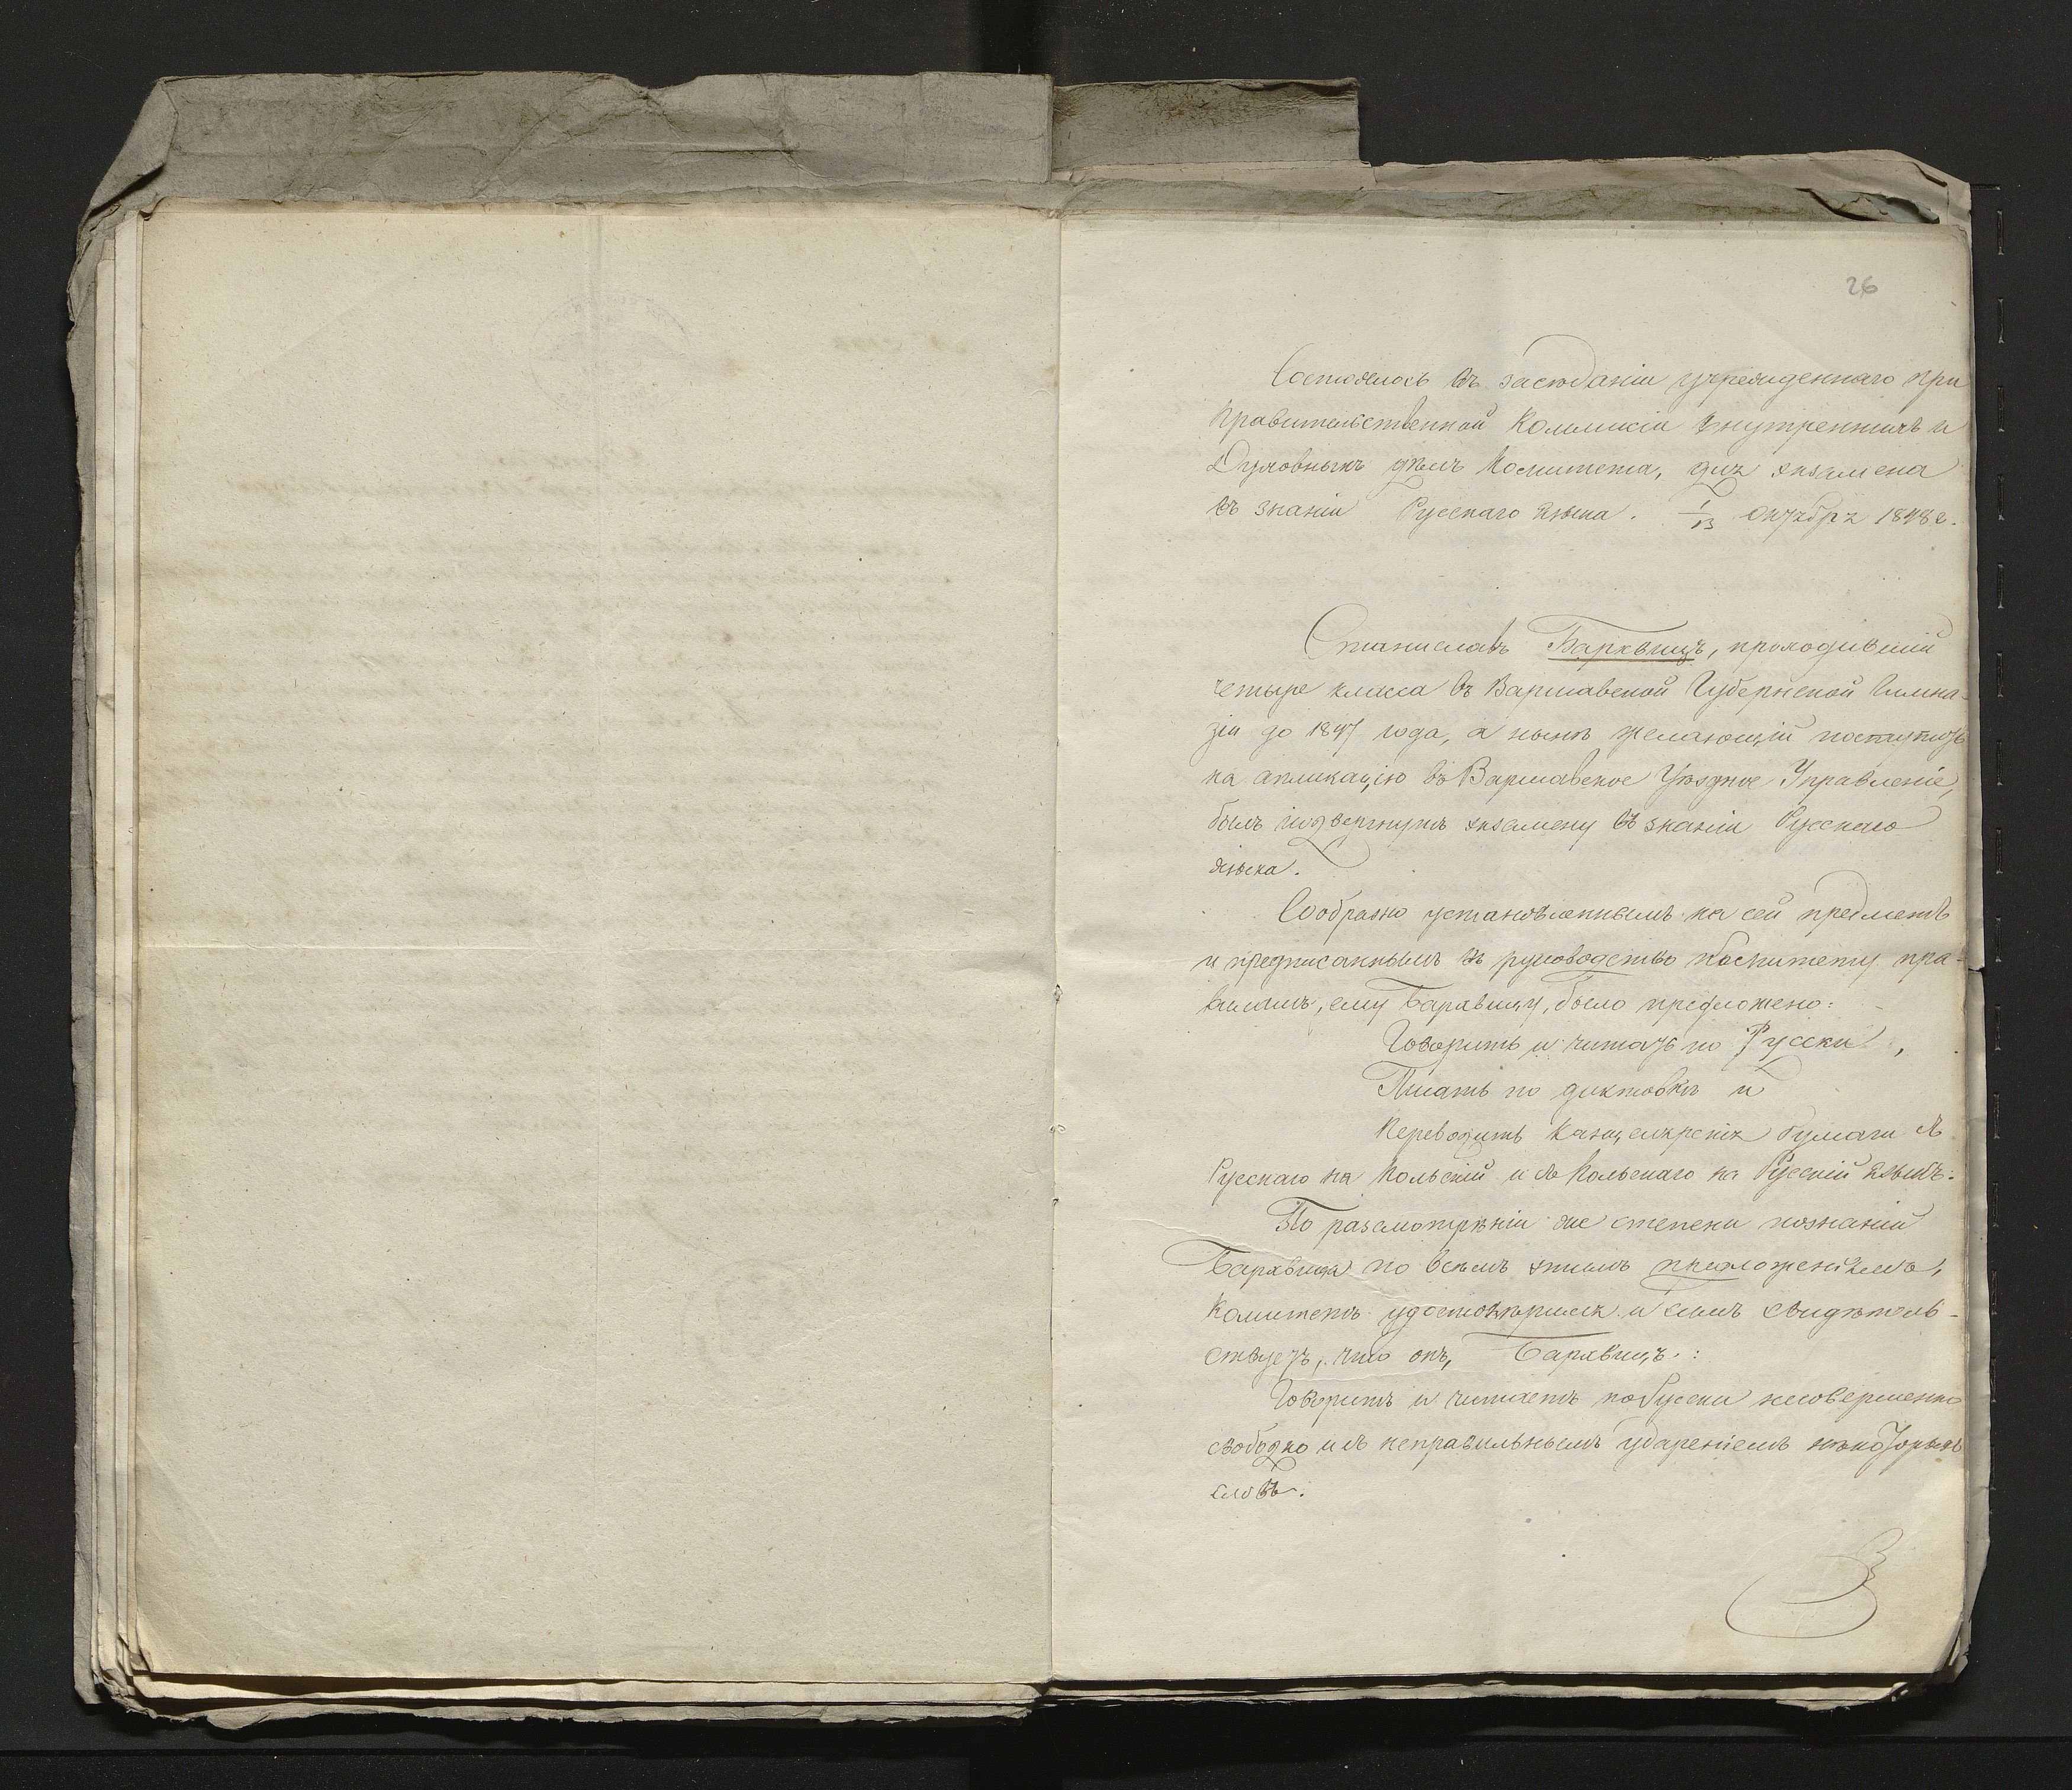 26
Состоялось въ засѣданіи учрежденнаго при
Правительственной Коммисіи Внутреннихъ и
Духовныхъ дѣлъ Комитета, для экзамена
въ знаніи Русскаго языка. 1/13 Октября 1848 г.
Станиславъ Барквицъ, проходившій
четыре класса въ Варшавской Губернской Гимна-
зіи до 1847 года, а нынѣ желающій поступить
на апликацію въ Варшавское Уѣздное Управленіе,
былъ подвергнутъ экзамену въ знаніи Русскаго
языка.
Сообразно установленнымъ на сей предметъ
и предписаннымъ въ руководство Комитету пра-
виламъ, ему Барквицу, было предложено:
Говорить и читать по Русски,
Писать по диктовкѣ и
Переводить Канцелярскія бумаги съ
Русскаго на Польскій и съ Польскаго на Русскій языкъ.
По разсмотрѣніи же степени познаній
Барквица по всѣмъ этимъ предложеніямъ,
Комитетъ удостовѣрился и симъ свидѣтель-
ствуетъ, что онъ, Барквицъ:
Говоритъ и читаетъ по Русски несовершенно
свободно и съ неправильнымъ удареніемъ нѣкоторыхъ
словъ.